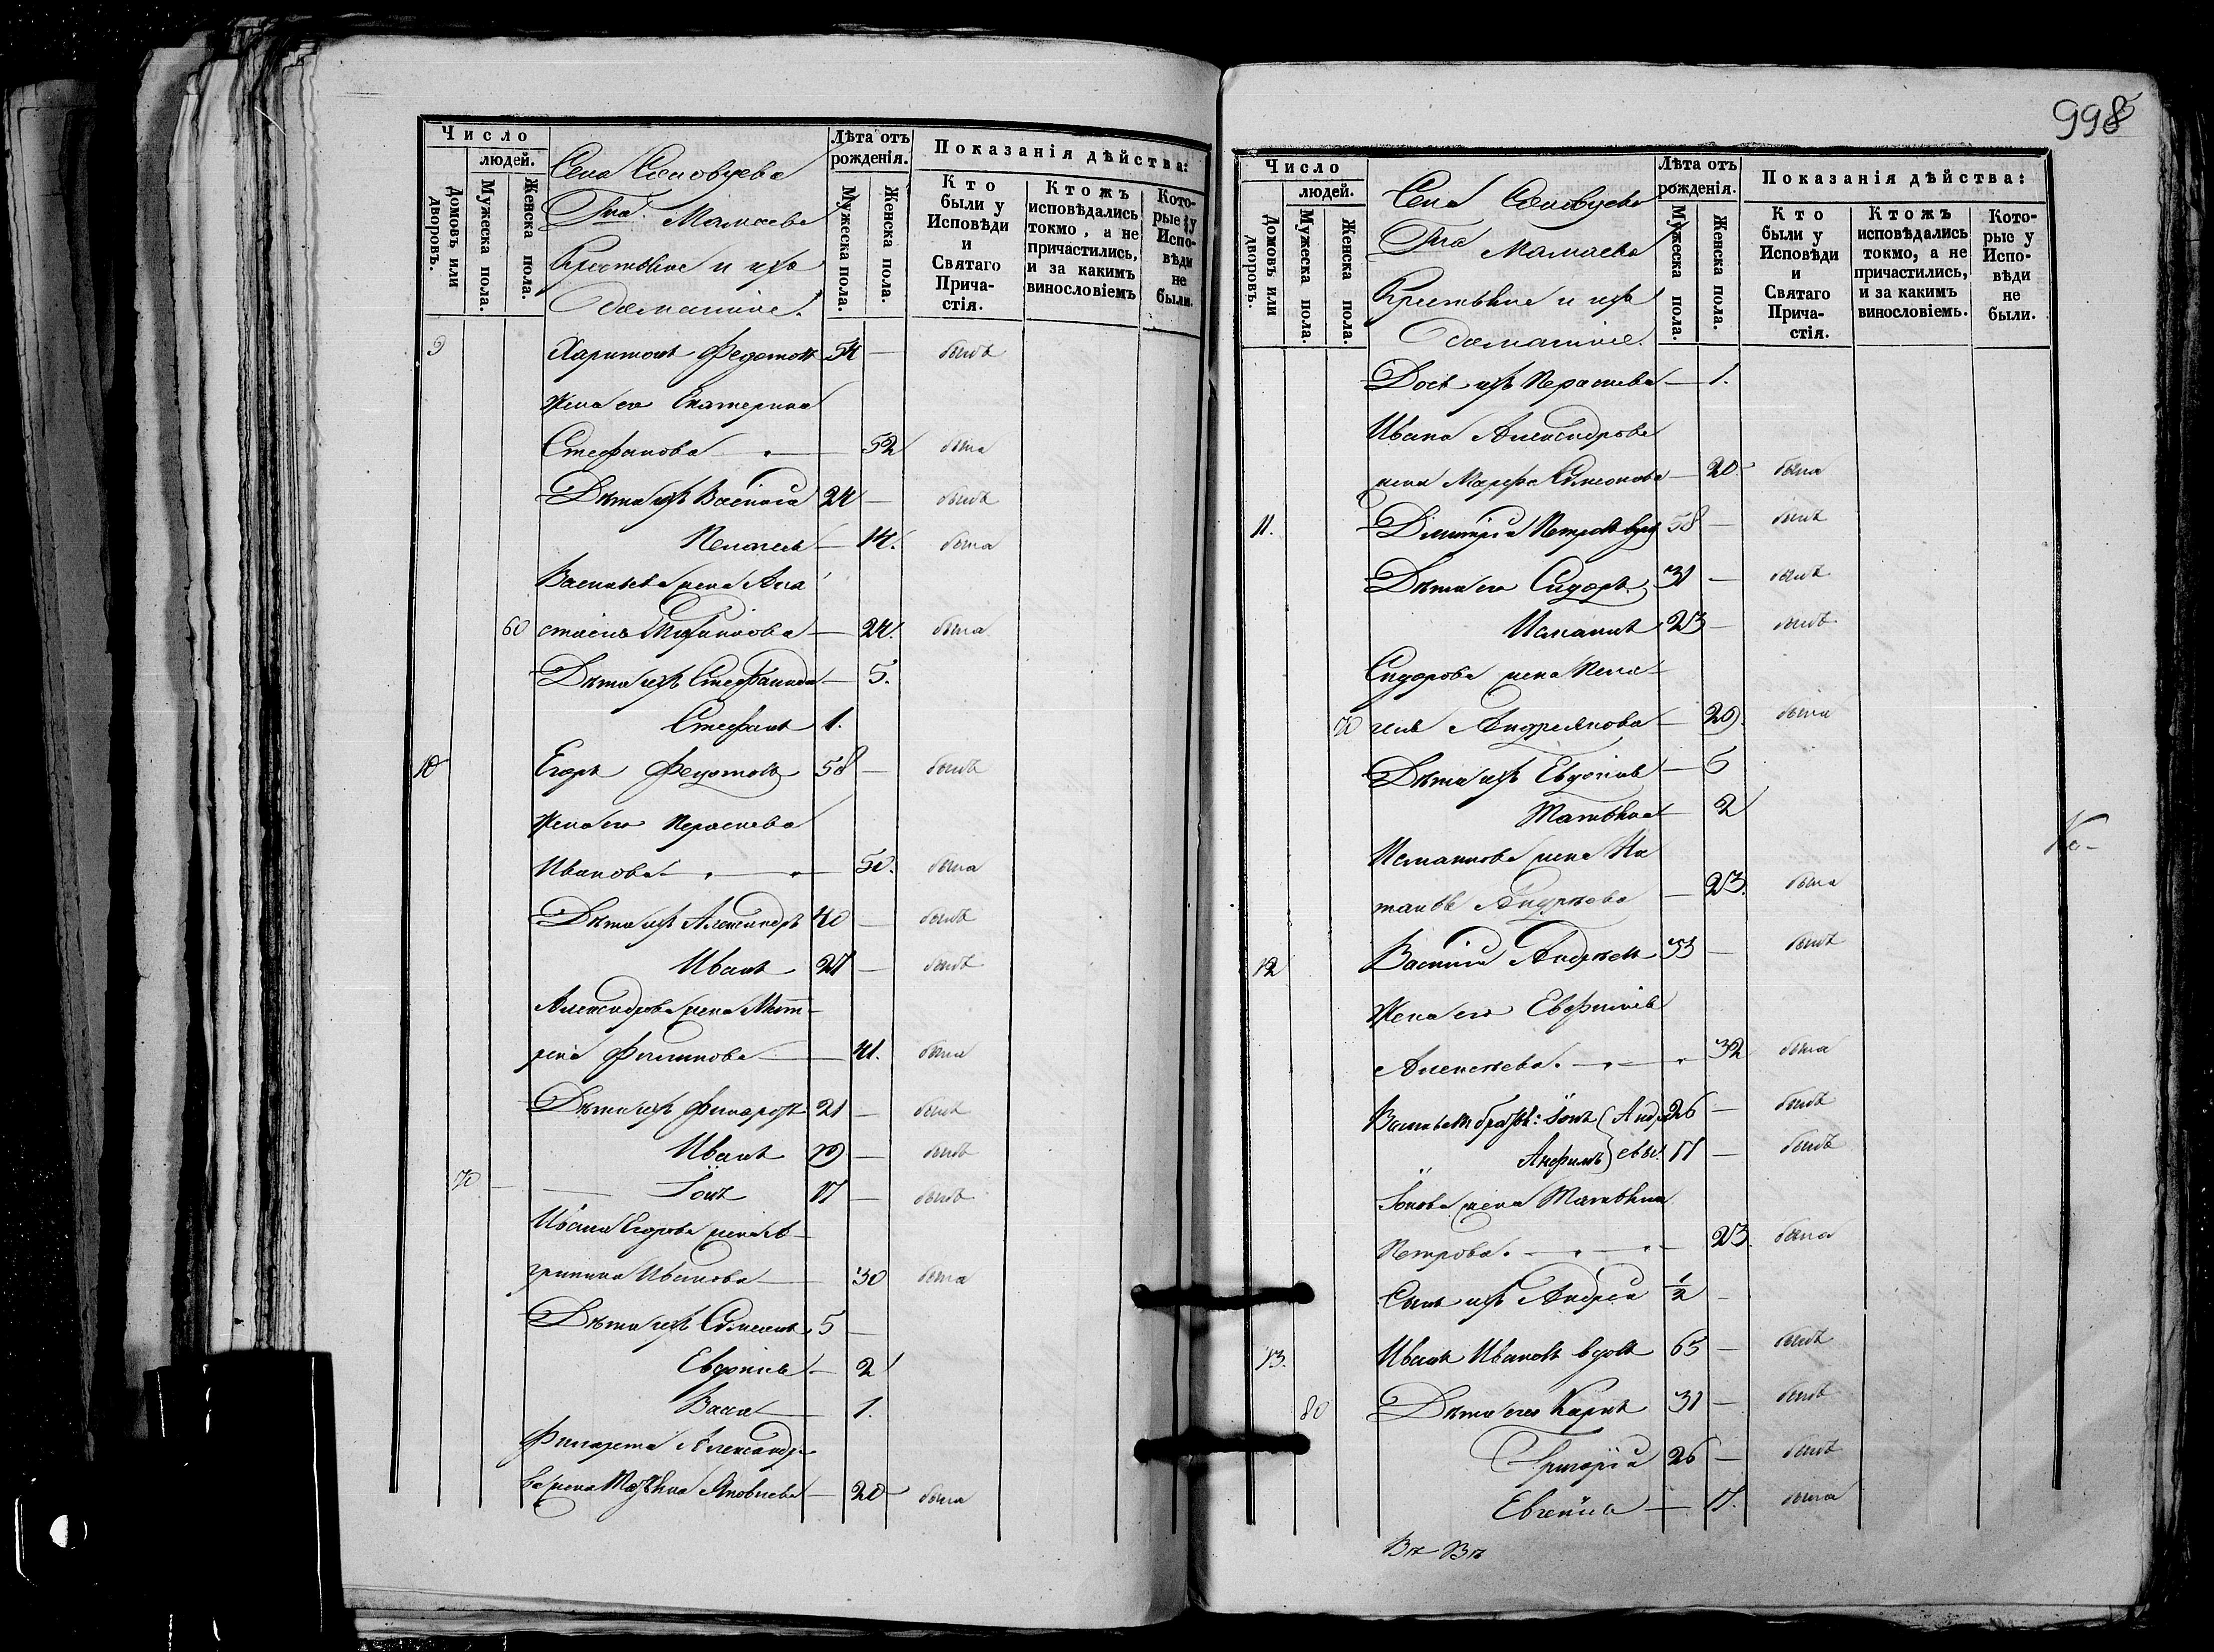 Число
людей.
Домовъ или дворовъ.
Мужеска пола.
Женска пола.
Села
Гна. Мамаева
Крестьяне и ихъ
домашніе.
Лѣта отъ рожденія.
Мужеска пола.
Женска пола.
Показанія дѣйства:
Кто были у Исповѣди и Святаго Причастія.
Ктожъ исповѣдались токмо, а не причастились, и за какимъ винословіемъ
Которые у Исповѣди не были.
9 Харитонъ Федотовъ 54 — былъ
Жена его Екатерина
Стефанова — 52 была
Дѣти ихъ Василій 24 — былъ
Пелагея — 14. была
Васильева жена Ана
60 стасія — 24. была
Дѣти ихъ Стефанида — 5.
Стефанъ 1.
10 Егоръ Федотовъ 58 — былъ
Жена его Параскева
Иванова — 50. была
Дѣти ихъ Александръ 40 — былъ
Иванъ 27 — былъ
Александрова жена Мат-
рена Филипова — 41. была
Дѣти ихъ Филаретъ 21 — былъ
Иванъ 19 — былъ
70 — Іонъ 17 — былъ
Ивана Егорова жена Аг-
рипина Иванова — 30 была
Дѣти ихъ Симеонъ 5 —
Евдокія — 2
Васса — 1.
Филарета Александро
ва жена Яковлева — 20 была
998
Число
людей.
Домовъ или дворовъ.
Мужеска пола.
Женска пола.
Села
Гна Мамаева
Крестьяне и ихъ
домашніе.
Лѣта отъ рожденія.
Мужеска пола.
Женска пола.
Показанія дѣйства:
Кто были у Исповѣди и Святаго Причастія.
Ктожъ исповѣдались токмо, а не причастились, и за какимъ винословіемъ.
Которые у Исповѣди не были.
Дочь ихъ Параскева — 1.
Ивана Александрова
жена Марфа Симеонова — 20 была
11. Димитрій Петровъ вдов 58 — былъ
Дѣти его Сидоръ 31 — былъ
23 — былъ
Сидорова жена Пела-
70 гея Андреянова — 29. была
Дѣти ихъ Евдокія — 6
Татьяна — 2
жена На
талья Андреева — 23. была
12 Василій Андреевъ 33 — былъ
Жена его Евфимія
Алексѣева. — 32 была
Васильевы братья: Іонъ Андре 26 — былъ
Анфимъ евы. 17 — былъ
Іонова жена Татьяна
Петрова. — 23. была
Сынъ ихъ Андрей 1/2 —
13. Иванъ Ивановъ вдовъ 65 — былъ
80 Дѣти его Карпъ 31 — былъ
Григорій 26 — былъ
Евгенія — 17. была